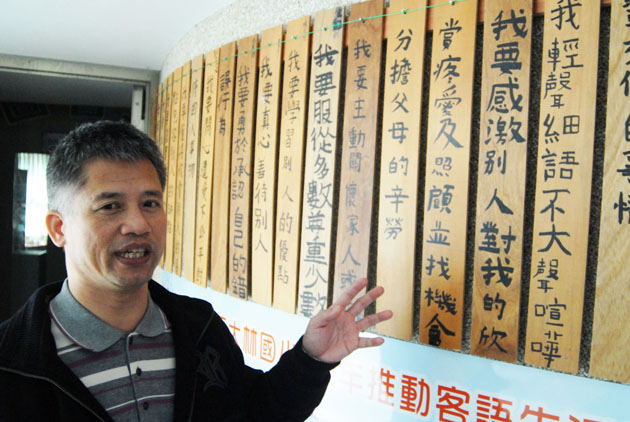 的事情
我輕聲細語不大聲喧嘩
我要感激別人對我的欣
賞疼愛及照顧並找機會
分擔父母的辛勞
我要主動關懷家人或
我要服從多數尊重少數
我要學習別人的優點
我要真心善待別人
我要勇於承認自己的錯
誤行為
我要關心遭受不公平
士林國小 年推動客語生活